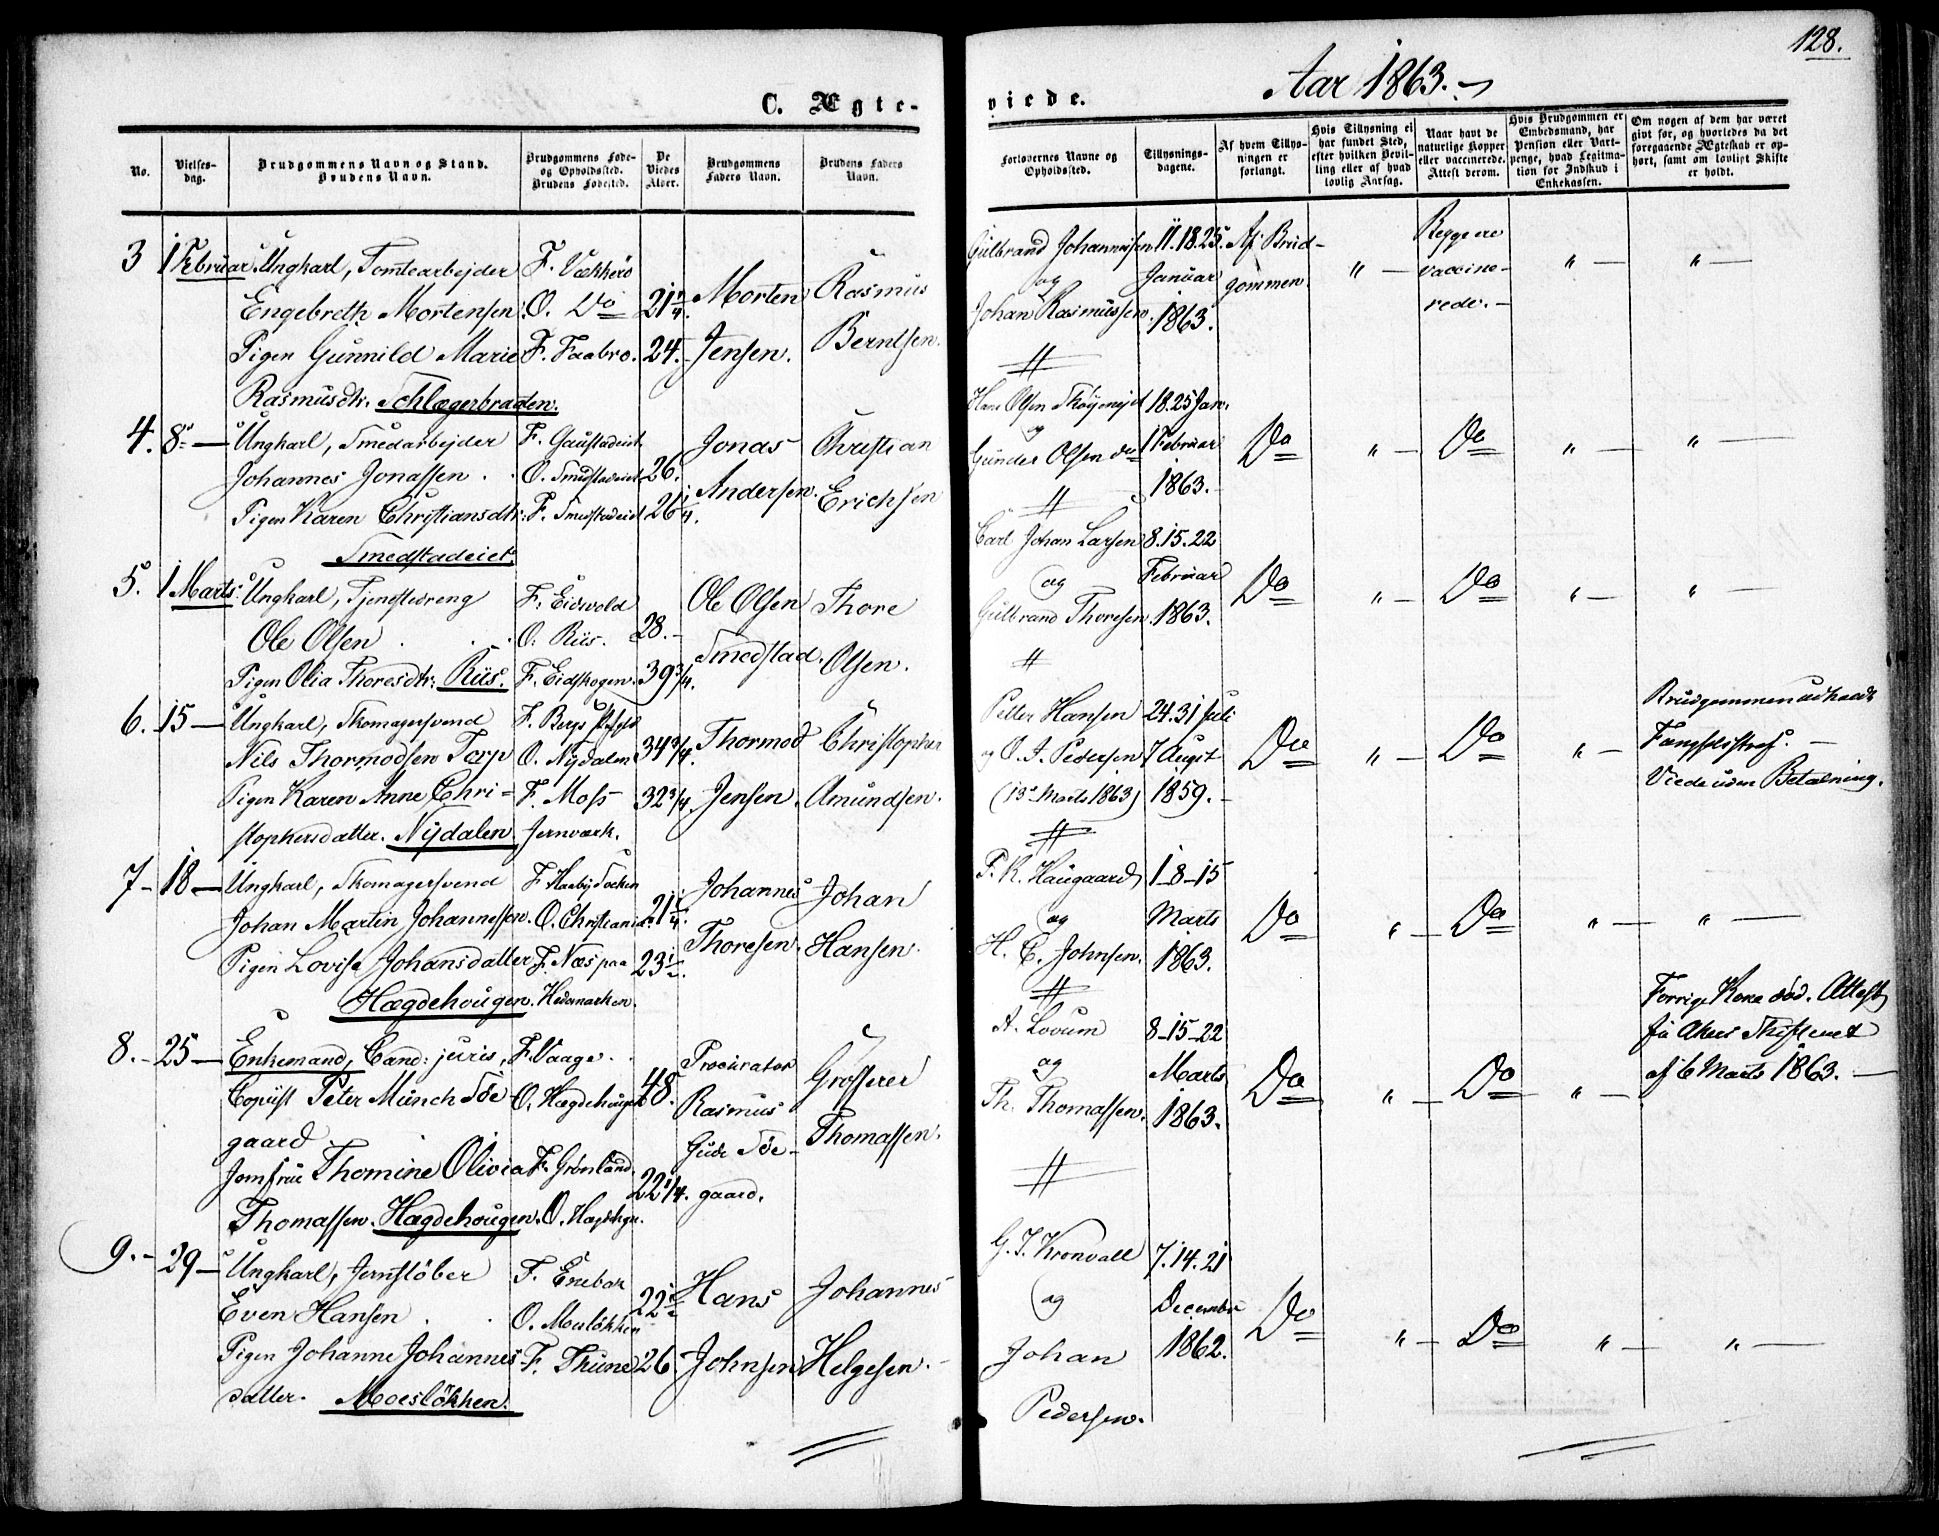 128.
Aar 1863.
C. Ægte-
viede.
No.
Vielses-
dag.
Brudgommens Navn og Stand.
Brudens Navn.
Brudgommens Føde-
og Opholdssted.
Brudens Fødested.
De
Viedes
Alder.
Brudgommens
Faders Navn.
Brudens Faders
Navn.
Forlovernes Navne og
Opholdssted.
Tillysnings-
dagene.
Af hvem Tillys-
ningen er
forlangt.
Hvis Tillysning ei
har fundet Sted,
efter hvilken Bevil-
ling eller af hvad
lovlig Aarsag.
Naar havt de
naturlige Kopper
eller vaccinerede.
Attest derom.
Hvis Brudgommen er
Embedsmand, har
Pension eller Vart-
penge, hvad Legitima-
tion for Indskud i
Enkekassen.
Om nogen af dem har været
givt før, og hvorledes da det
foregaaende Ægteskab er op-
hørt, samt om lovligt Skifte
er holdt.
3 1 Februar. Ungkarl, Tomtearbejder F. Vækkerø
Engebreth Mortensen. O. Do 21 1/4. Morten Rasmus
Pigen Gunnild Marie F. Faabro. 24. Jensen. Berntsen.
Rasmusdtr. Schlægerbraaten.
Gulbrand Johannesen 11.18.25. Af Brud- " Begge ere " "
og Januar gommen vaccine-
Johan Rasmussen. 1863. rede.
4. 8de Ungkarl, Smedarbejder F. Gaustadeiet Jonas Christian
Johannes Jonassen. O. Smedstadeiet 26. Andersen. Erichsen
Pigen Karen Christiansdtr. F. Smedstadeiet 26 1/4.
Smedstadeiet.
Hans Olsen 18.25 Jan.
og 1 Februar Do " Do " "
Gunder Olsen 1863.
5. 1 Marts: Ungkarl, Tjenestedreng F. Eidsvold Ole Olsen Thore
Ole Olsen O. Riis. 28. Smedstad. Olsen.
Pigen Olia Thoresdtr: Riis. F. Eidskogen. 39 3/4.
Carl Johan Larsen 8.15.22
og Februar Do " Do " "
Gulbrand Thoresen. 1863.
6. 15 Ungkarl, Skomagersvend F. Bergs Pstgld
Nils Thormodsen Torp O. Nydalen 34 3/4. Thormod Christopher
Pigen Karen Anne Chri- F. Moss 32 3/4 Jensen. Amundsen.
stophersdatter. Nydalen. Jernværk.
Petter Hansen 24.31 Juli
og O. A. Pedersen 7 August Do " Do "
(13de Marts 1863) 1859.
Viede uden Betalning.
7 18 Ungkarl, Skomagersvend
Johan Martin Johannessen. O. Christiania. 21 1/4. Johannes Johan
Pigen Lovise Johansdatter F. Næs paa 23 1/2. Thoresen. Hansen.
Hægdehougen. Hedemarken.
P. K. Haugaard 1-8-15
og Marts Do " Do " "
H. C. Johnsen. 1863.
8. 25 Enkemand, Cand: juris, F. Vaage. Procurator Grosserer
Copiist Peter Munch Sde- O. Hægdehougen 48. Rasmus Thomassen.
gaard Gude Sde-
Jomfrue Thomine Olivia F. Grønland. 22 1/4. gaard.
Thomassen. Hægdehougen. O. Hægdehgn.
A. Lovum 8-15-22
og Marts Do " Do "
Th. Thomassen. 1863.
Forrige Kone død. Attest
fra Akers Skifteret
af 6 Marts 1863.
9. 29 Ungkarl, Jernstøber F. Enebak
Even Hansen O. Moesløkken 22 1/2 Hans Johannes
Pigen Johanne Johannes- F. Thune 26 Johnsen Helgesen.
datter. Moesløkken.
G. J. Kronvall 7.14.21
og December Do " Do " "
Johan 1862.
Pedersen.